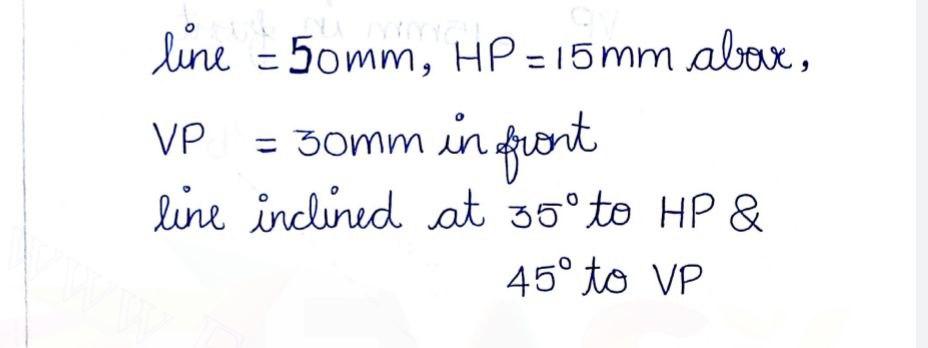 line = 50mm, HP = 15mm above,
VP = 30mm in front
line inclined at 35° to HP &
45° to VP